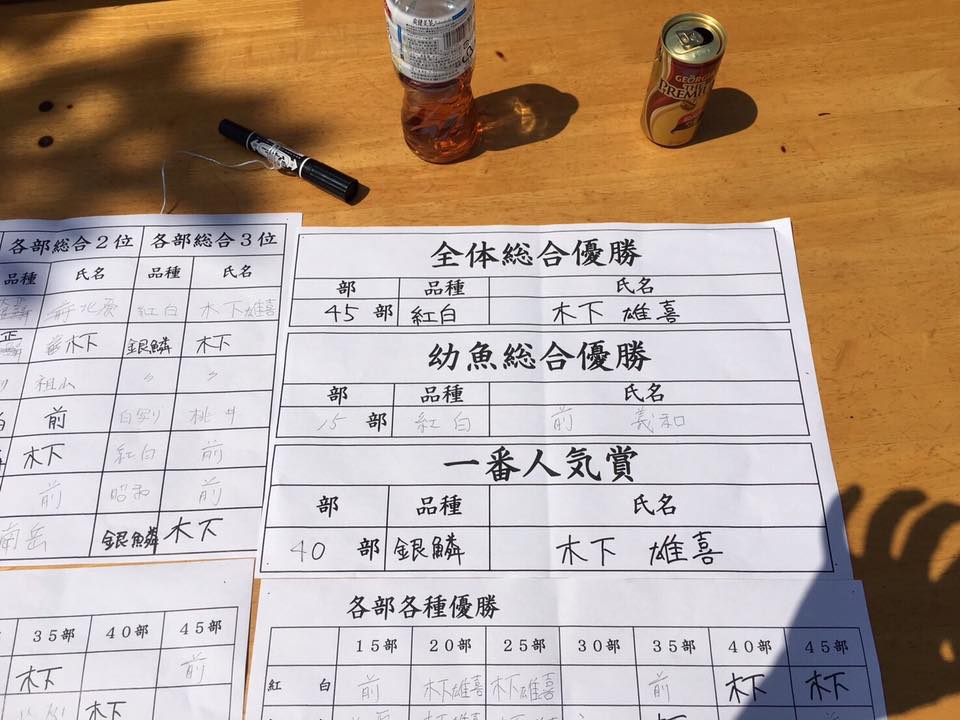 GEORGIA
THE
PREMIUM
各部総合2位 各部総合3位
品種 氏名 品種 氏名
紅白 木下雄喜
木下 銀鱗 木下
祖山 〃 〃
前 白写り 桃井
木下 紅白 前
前 昭和 前
南岳 銀鱗 木下
全体総合優勝
部 品種 氏名
45部 紅白 木下 雄喜
幼魚総合優勝
部 品種 氏名
15部 紅白 前 義和
一番人気賞
部 品種 氏名
40部 銀鱗 木下 雄喜
35部 40部 45部
木下 前
木下
各部各種優勝
15部 20部 25部 30部 35部 40部 45部
紅白 前 木下雄喜 木下雄喜 前 木下 木下